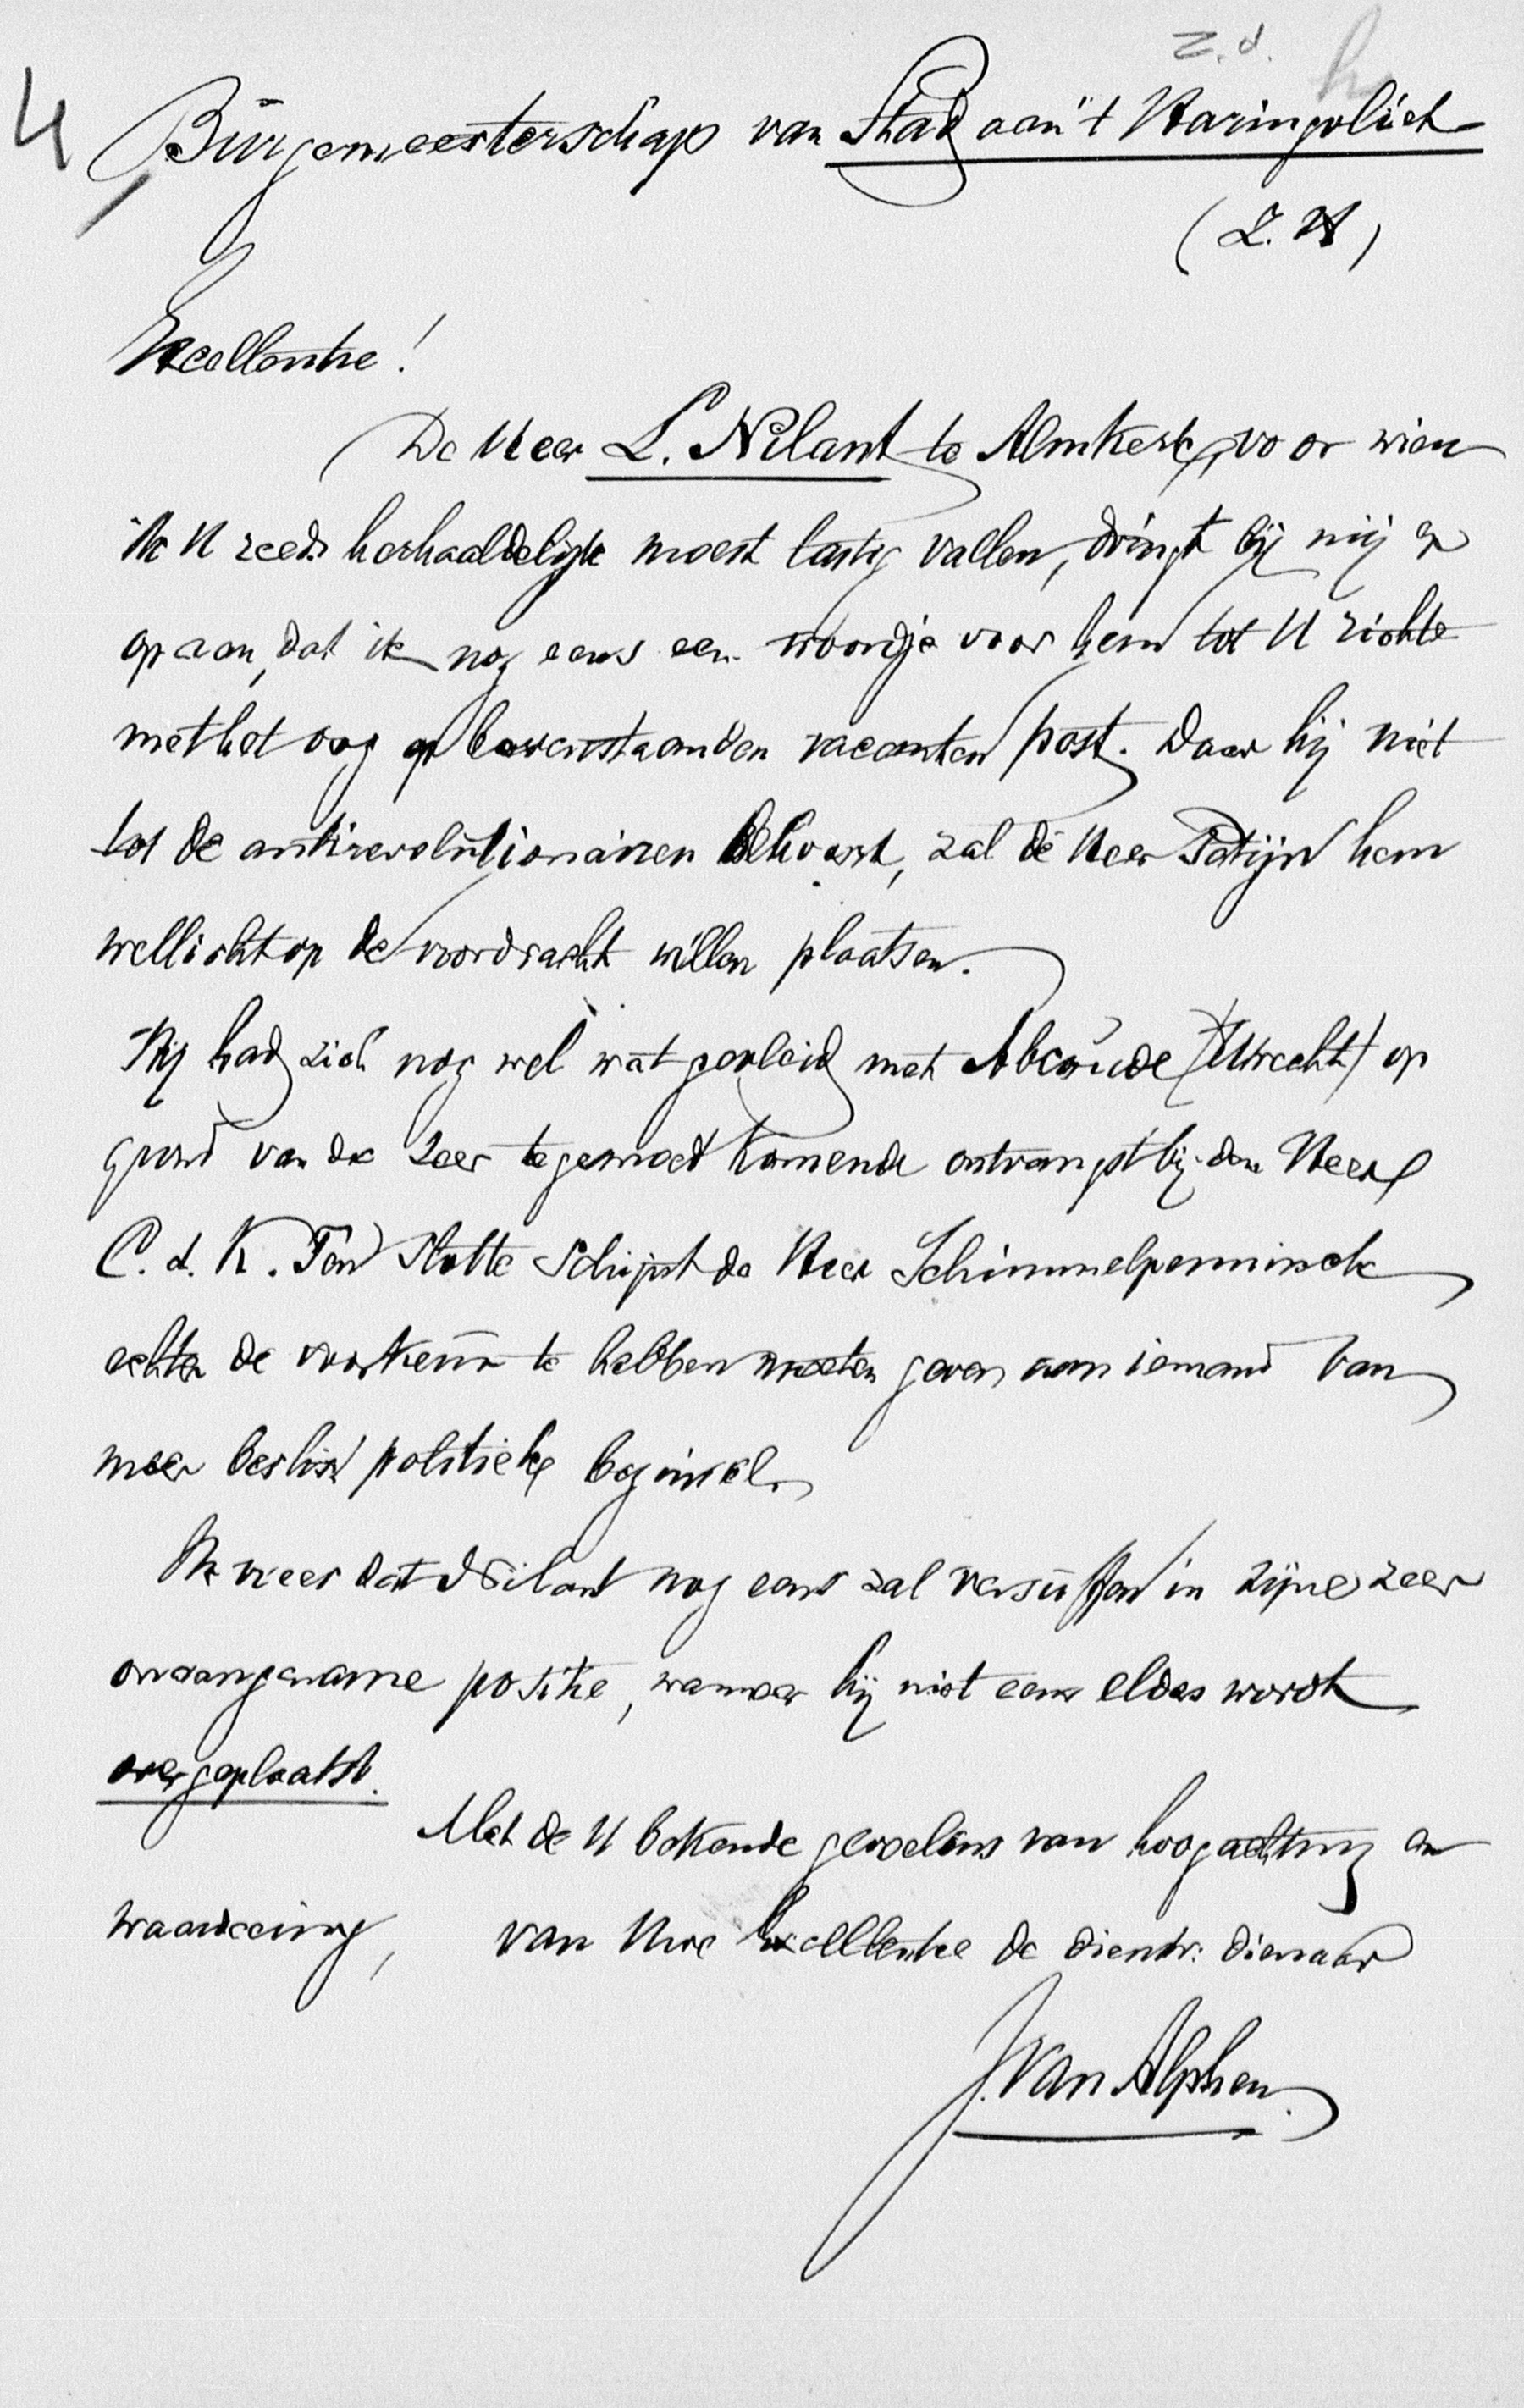 z.d.
4 Burgemeesterschap van Stad aan 't Haringvliet
(Z. H)
Excellentie!
De Heer L. Nilant te Almkerk, voor wien
ik U reeds herhaaldelijk moest lastig vallen, dringt bij mij er
op aan, dat ik nog eens een woordje voor hem tot U richte
met het oog op bovenstaanden vacanten post. Daar hij niet
tot de antirevolutionairen behoort, zal de Heer Patijn hem
wellicht op de voordracht willen plaatsen.
Hij had zich nog wel wat gevleid met Abcoude (Utrecht) op
grond van de zeer tegemoet komende ontvangst bij den Heer
C. d. K. Ten slotte schijnt de Heer Schimmelpenninck
echter de voorkeur te hebben moeten geven aan iemand van
meer beslist politieke beginselen
Ik vrees dat Nilant nog eens zal versuffen in zijne zeer
onaangename positie, wanneer hij niet eens elders wordt
overgeplaatst.
Met de U bekende gevoelens van hoogachting en
waardeering, van Uwe Excellentie de dienstw: dienaar
J. van Alphen.